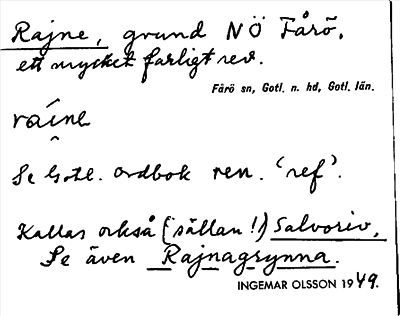 Rajne, grund NÖ Fårö,
ett mycket farligt rev.
Fårö sn, Gotl. n. hd, Gotl. län.
raine
Se Gotl. ordbok ren. 'ref'.
Kallas också (sällan!) Salvoriv,
Se även Rajnagrynna.
INGEMAR OLSSON 1949.